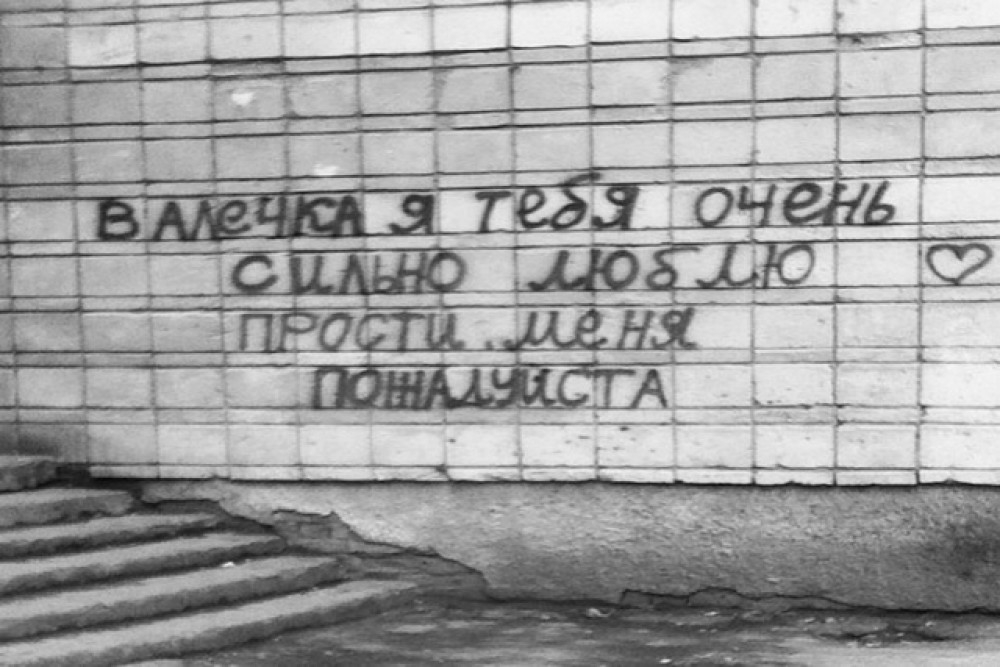 Валечка я тебя очень
сильно люблю ♡
прости меня
пожалуйста